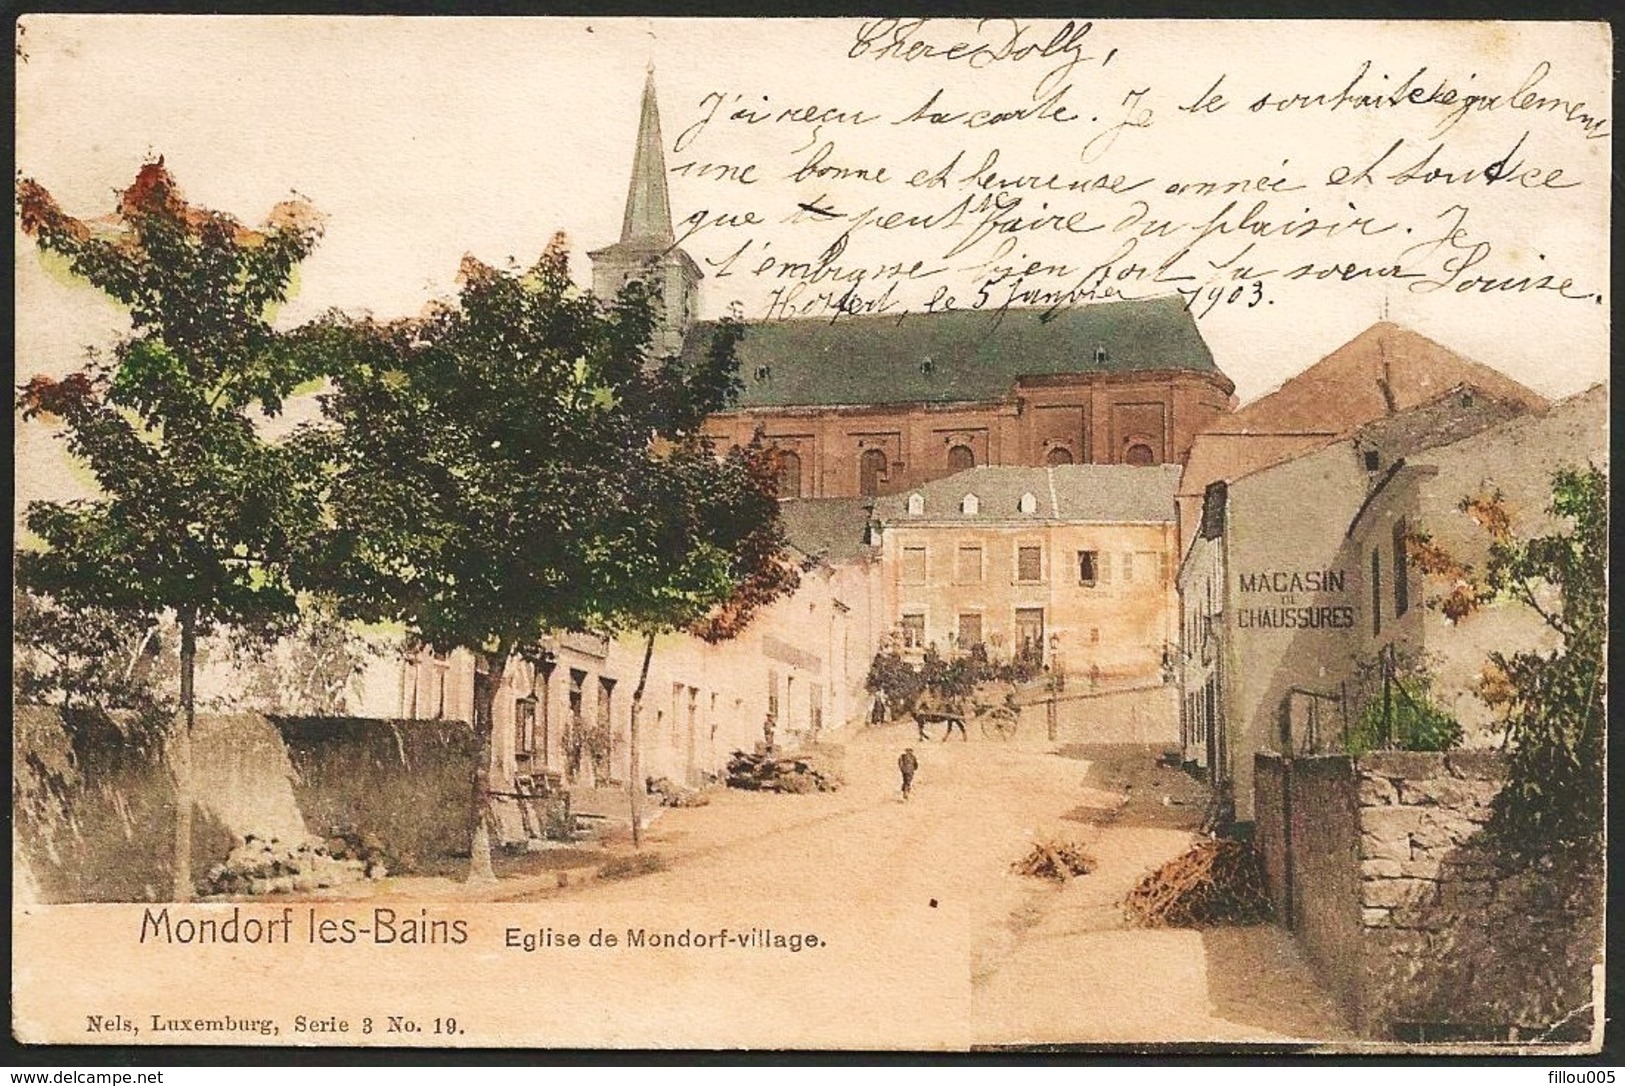 Chere Dolly,
J'ai reçu ta carte. Je te souhaite également
une bonne et heureuse année et tout ce
que peut te faire du plaisir. Je
t'embrasse bien fort ta soeur Louise.
le 5 Janvier 1903.
MAGASIN
DE
CHAUSSURES
Mondorf les-Bains Eglise de Mondorf-village.
Nels, Luxemburg, Serie 3 No. 19.
https://www.delcampe.net fillou005